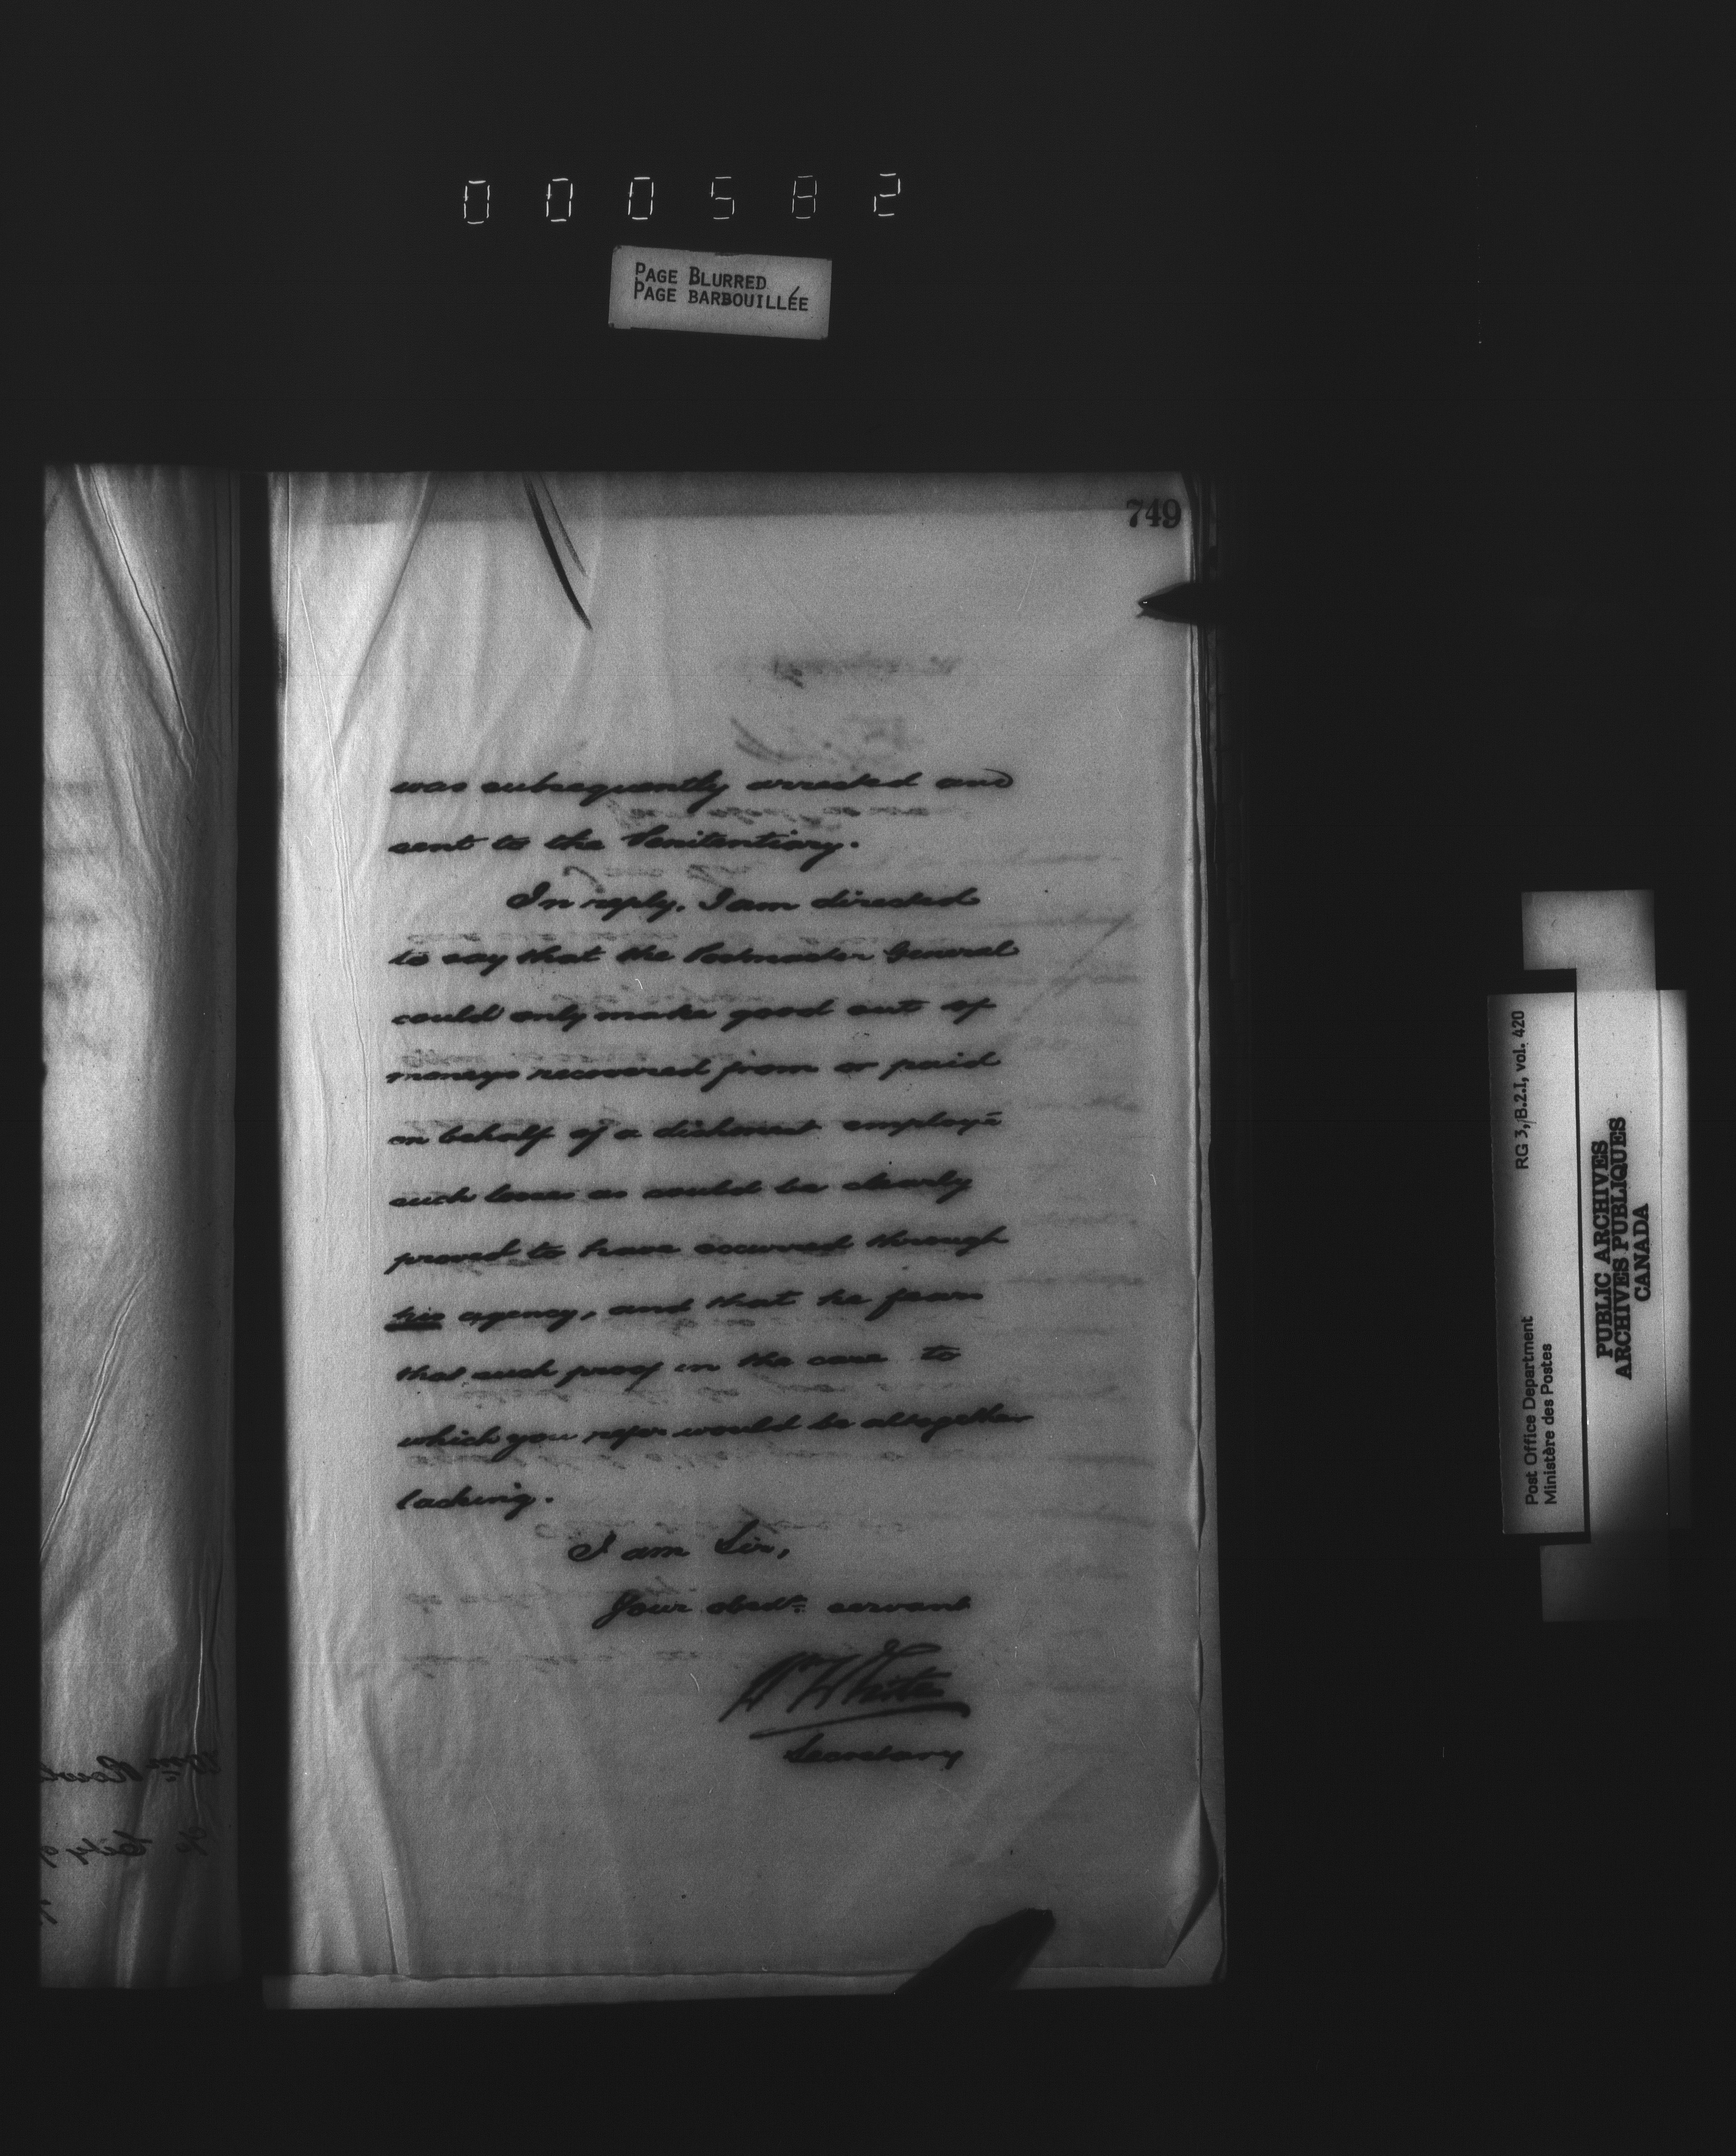 000582
PAGE BLURRED
PAGE BARBOUILLÉE
749
was subsequently arrested and
sent to the Penitentiary.
In reply, I am directed
to say that the Postmaster General
could only make good out of
moneys recovered from or paid
on behalf of a dishonest employé
such losses as could be clearly
proved to have occurred through
his agency, and that he fears
that such proof in the case to
which you refer would be altogether
lacking.
I am Sir,
Your obedt. servant
Wm White
Secretary
Wm
City of
RG 3, B.2.I, vol. 420
Post Office Department
Ministère des Postes
PUBLIC ARCHIVES
ARCHIVES PUBLIQUES
CANADA